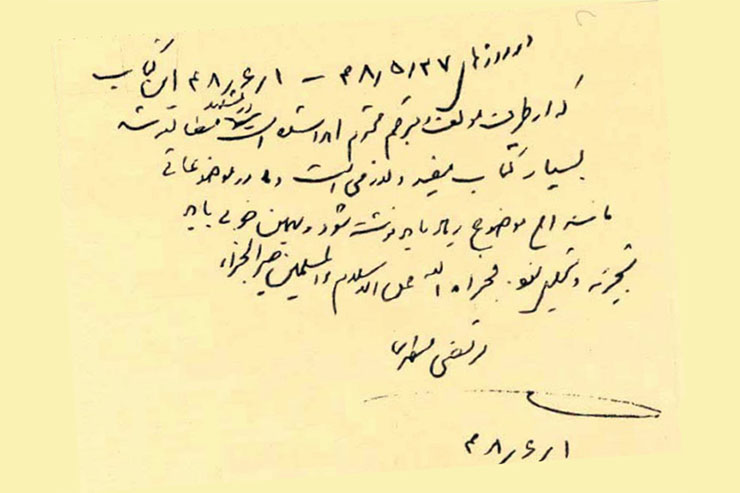 در روزهای ۴۸/۵/۲۷ – ۴۸/۶/۱ این کتاب
که از طرف مؤلف و مترجم محترم اهدا شده است در مشهد مطالعه شد
بسیار کتاب مفید و لازمی است و در موضوعاتی
مانند این موضوع زیاد باید نوشته شود و به همین خوبی باید
تجزیه و تحلیل شود. فجزاه الله عن الاسلام و المسلمین خیر الجزاء
مرتضی مطهری
۴۸/۶/۱